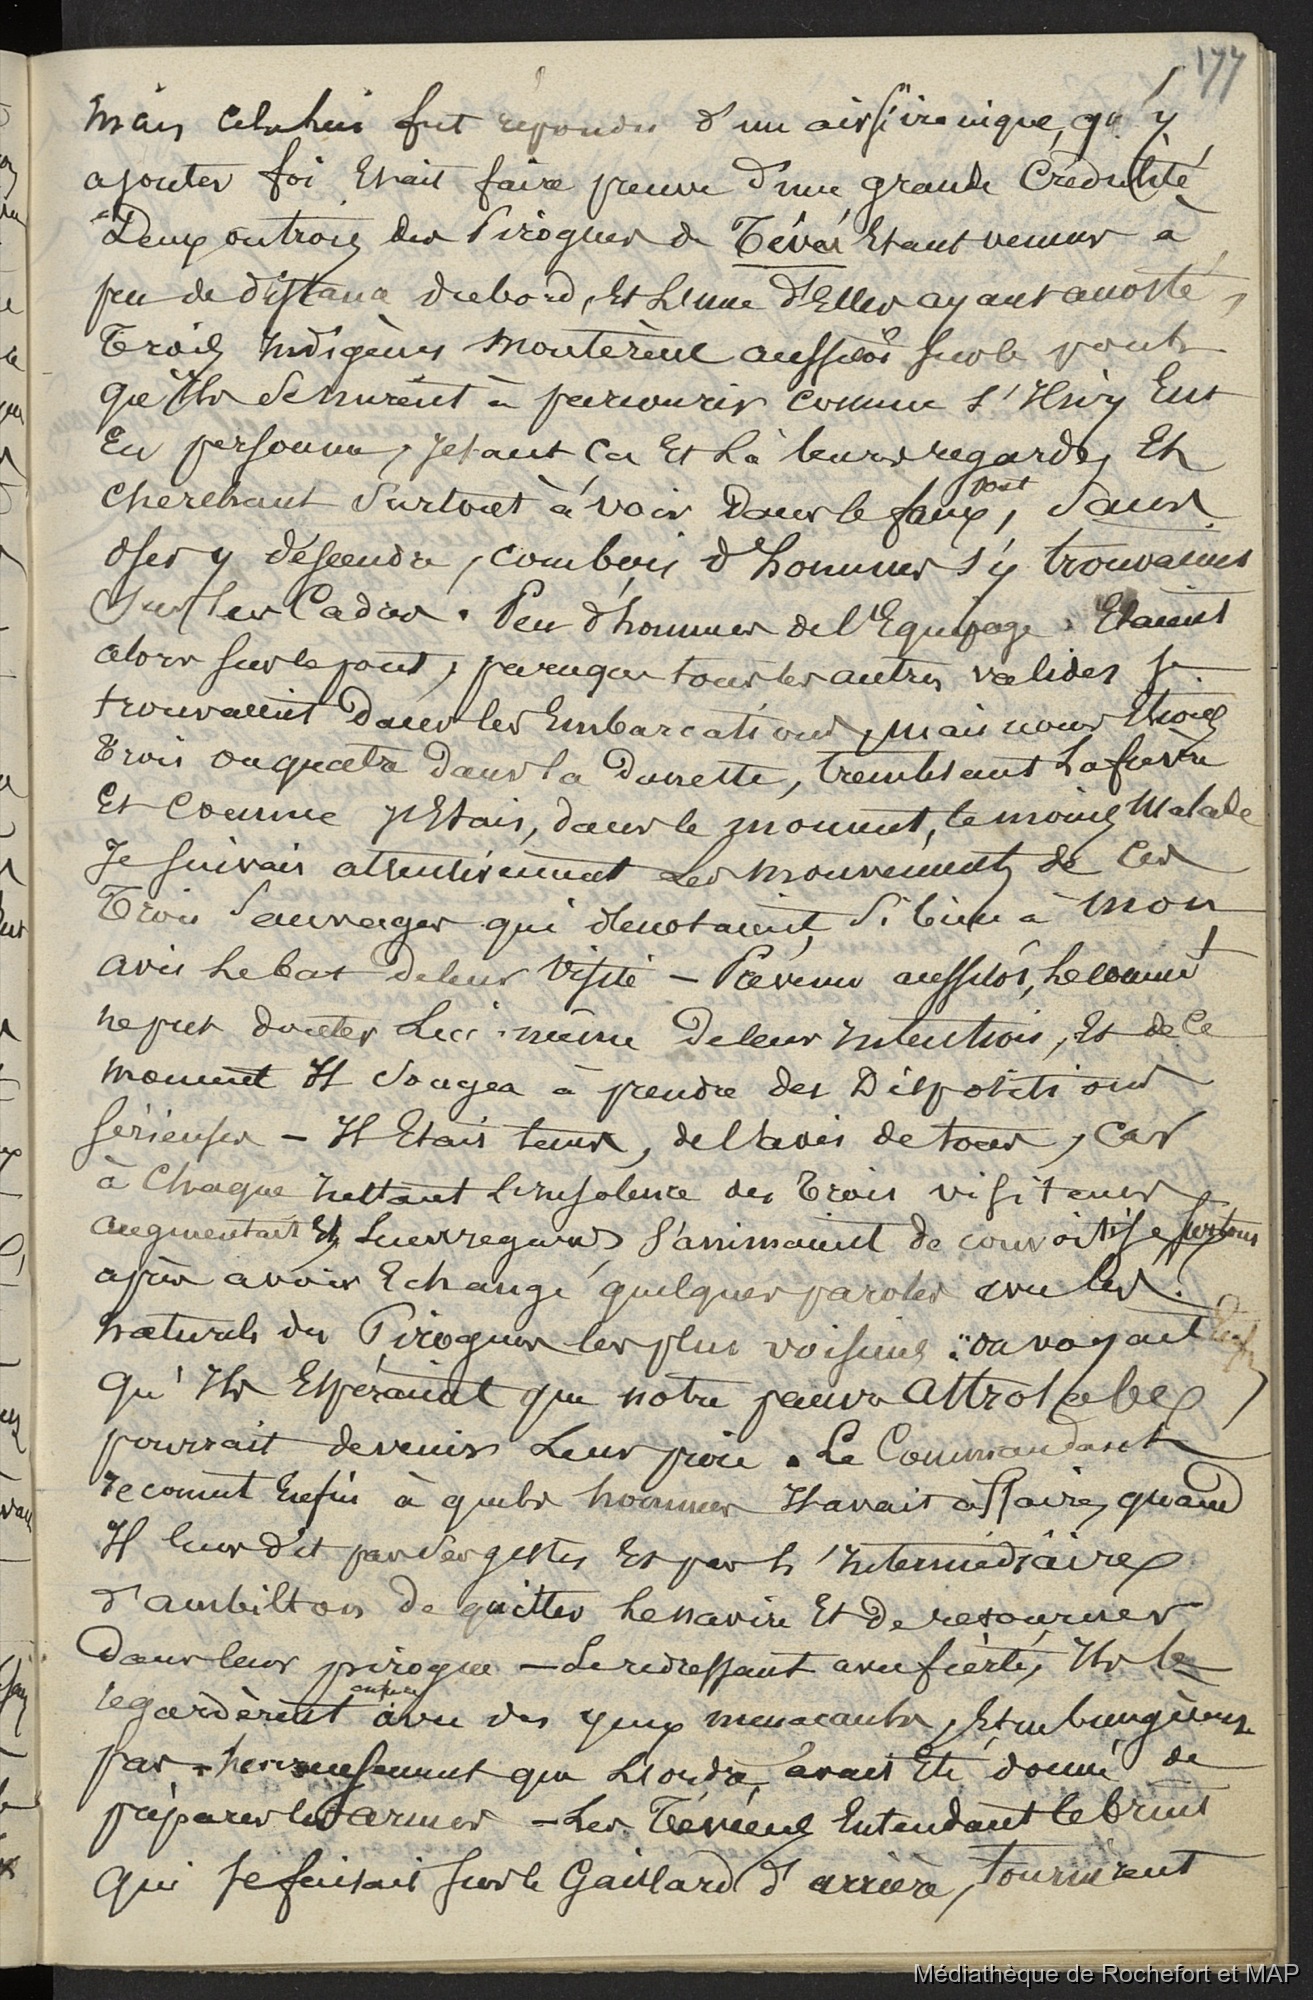 177
mais cela lui fut répondu d'un air si ironique, qu'y
ajouter foi Etait faire preuve d'une grande Crédulité
Deux ou trois des Pirogues de Tévaï Etant venues à
peu de distance du bord, Et L'une d'Elles ayant accosté,
Trois Indigènes montèrent aussitôt sur le pont
qu'Ils se mirent à parcourir comme s'Ils y Eut
En personne, jetant Ca Et Là leurs regards, Et
cherchant surtout à voir dans le faux pont, sans
oser y descendre, combien d'hommes s'y trouvaient
sur les Cadres. Peu d'hommes de l'Equipage Etaient
alors sur le pont, parceque tous les autres valides se
trouvaient dans les Embarcations, mais nous Etions
Trois ou quatre dans la Dunette, tremblant La fièvre
Et Comme j'Etais, dans le moment, le moins Malade
Je suivais attentivement Les mouvements de Ces
Trois Sauvages qui dénotaient si bien à mon
avis Le but de leur Visite - Prévenu aussitôt, Le commt
ne put douter Lui-même De leur Intention, Et de Ce
moment Il songea à prendre des Dispositions
sérieuses - Il Etait tems, de l'avis de tous, Car
à Chaque Instant L'insolence des Trois visiteurs
augmentait Et Leurs regards s'animaient de convoitise surtout
après avoir Echangé quelques paroles avec les
naturels des Pirogues les plus voisines : on voyait
qu'Ils Espéraient que notre pauvre Astrolabe
pourrait devenir Leur proie. Le Commandant
reconnut Enfin à quels hommes Il avait affaire, quand
Il leur dit par des gestes Et par L'Intermédiaire
d'ambilton De quitter Le navire Et De retourner
Dans leur pirogue - Se redressant avec fierté, Ils le
regardèrent avec des yeux menacants, Et ne bougèrent
pas. heureusement que L'ordre avait Eté donné de
préparer les armes - Les Téviens Entendant le bruit
qui se faisait sur le Gaillard d'arrière, tournèrent
Médiathèque de Rochefort et MAP